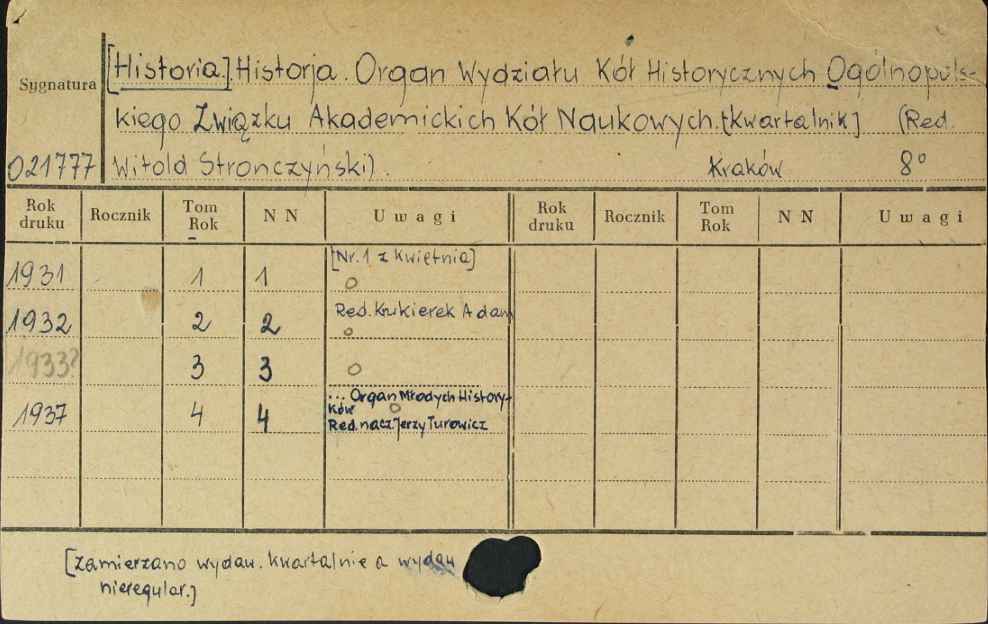 [Historia.] Historja. Organ Wydziału Kół Historycznych Ogólnopols-
Sygnatura
kiego Związku Akademickich Kół Naukowych. [Kwartalnik] (Red.
021777 Witold Stronczyński). Kraków 8°
Rok druku Rocznik Tom Rok N N Uwagi Rok druku Rocznik Tom Rok N N Uwagi
[Nr. 1 z kwietnia]
1931 1 1 o
Red. Kukierek Adam
1932 2 2 o
1933? 3 3 o
... Organ Młodych History-
ków o
1937 4 4
Red. nacz Jerzy Turowicz
[zamierzano wydaw. kwartalnie a wydaw
nieregular.]